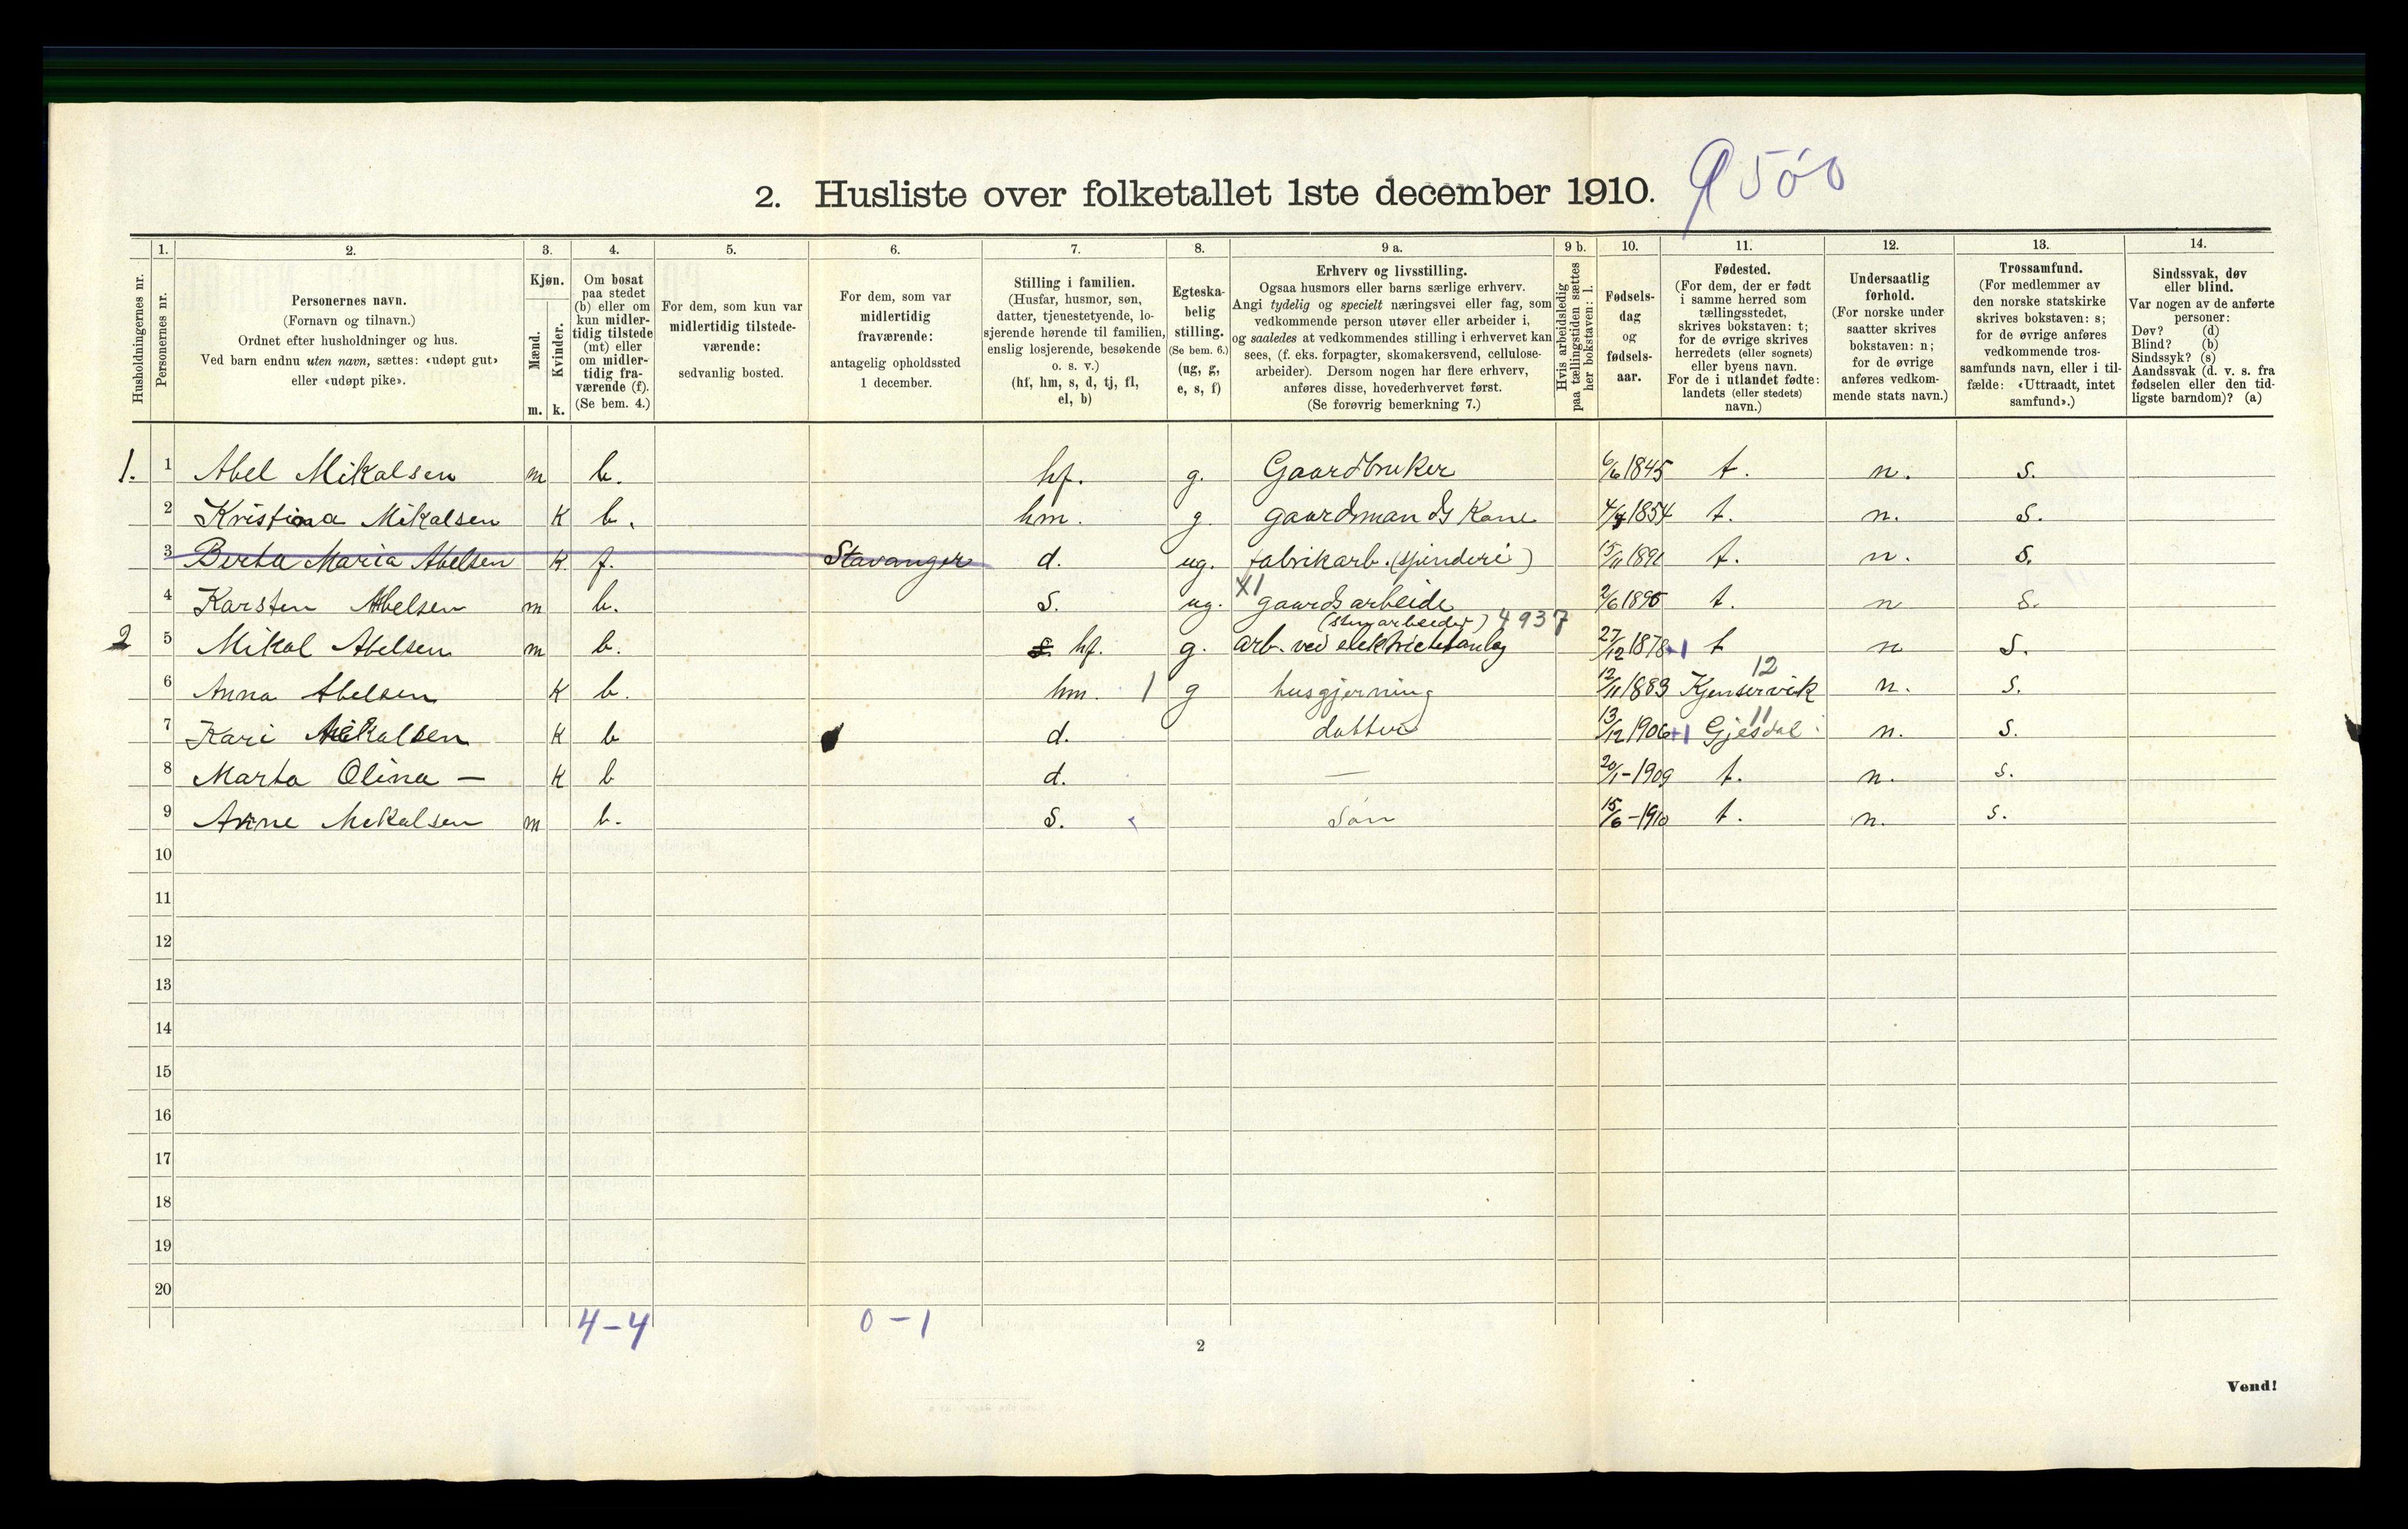 2. Husliste over folketallet 1ste december 1910.
Husholdningernes nr.
1.
Personernes nr.
2.
Personernes navn.
(Fornavn og tilnavn.)
Ordnet efter husholdninger og hus.
Ved barn endnu uten navn, sættes: «udøpt gut»
eller «udøpt pike».
3.
Kjøn.
Mænd.
Kvinder.
m. k.
4.
Om bosat
paa stedet
(b) eller om
kun midler-
tidig tilstede
(mt) eller
om midler-
tidig fra-
værende (f).
(Se bem. 4.)
5.
For dem, som kun var
midlertidig tilstede-
værende:
sedvanlig bosted.
6.
For dem, som var
midlertidig
fraværende:
antagelig opholdssted
1 december.
7.
Stilling i familien.
(Husfar, husmor, søn,
datter, tjenestetyende, lo-
sjerende hørende til familien,
enslig losjerende, besøkende
o. s. v.)
(hf, hm, s, d, tj, fl,
el, b)
8.
Egteska-
belig
stilling.
(Se bem. 6.)
(ug, g,
e, s, f)
9 a.
Erhverv og livsstilling.
Ogsaa husmors eller barns særlige erhverv.
Angi tydelig og specielt næringsvei eller fag, som
vedkommende person utøver eller arbeider i,
og saaledes at vedkommendes stilling i erhvervet kan
sees, (f. eks. forpagter, skomakersvend, cellulose-
arbeider). Dersom nogen har flere erhverv,
anføres disse, hovederhvervet først.
(Se forøvrig bemerkning 7.)
9 b.
Hvis arbeidsledig
paa tællingstiden sættes
her bokstaven: l.
10.
Fødsels-
dag
og
fødsels-
aar.
11.
Fødested.
(For dem, der er født
i samme herred som
tællingsstedet,
skrives bokstaven: t;
for de øvrige skrives
herredets (eller sognets)
eller byens navn.
For de i utlandet fødte:
landets (eller stedets)
navn.)
12.
Undersaatlig
forhold.
(For norske under
saatter skrives
bokstaven: n;
for de øvrige
anføres vedkom-
mende stats navn.)
13.
Trossamfund.
(For medlemmer av
den norske statskirke
skrives bokstaven: s;
for de øvrige anføres
vedkommende tros-
samfunds navn, eller i til-
fælde: «Uttraadt, intet
samfund».)
14.
Sindssvak, døv
eller blind.
Var nogen av de anførte
personer:
Døv? (d)
Blind? (b)
Sindssyk? (s)
Aandssvak (d. v. s. fra
fødselen eller den tid-
ligste barndom)? (a)
1. 1 Abel Mikalsen m b. hf. g. Gaardbruker 6/6 1845 t. n. s.
2 Kristina Mikalsen K b. hm. g. gaardmands Kone 1854 t. n. s.
3 Berta Maria Abelsen K. f. Stavanger d. ug. fabrikarb. (spinderi) 15/11 1891 t. n. s.
4 Karsten Abelsen m b. s. ug. XI gaardsarbeide 2/6 1895 t. n s.
4937
2 5 Mikal Abelsen m b. s. hf. g. arb. ved elektricitetsanlæg 27/12 1878 +1 t n s.
6 Anna Abelsen K b. hm. 1 g husgjerning 12/11 1883 Kjensvervik 12 n. s.
7 Kari Mikalsen K b d. datter 13/12 1906 +1 Gjesdal 11 n. s.
8 Marta Olina — K b d. — 20/1-1909 t. n. s.
9 Arne Mekalsen m b. s. søn 15/6-1910 t. n. s.
10
11
12
13
14
15
16
17
18
19
20
4-4 0-1
2
Vend!